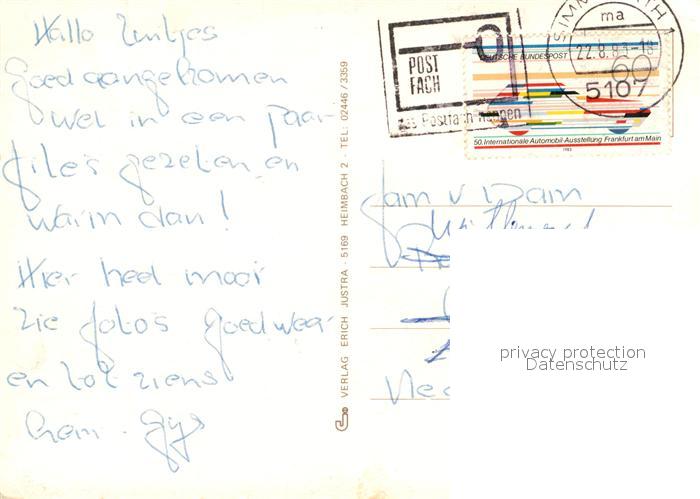 Hallo
goed aangekomen
wel in een paar
file's gezeten en
warm dan!
Hier heel mooi
zie foto's goed weer
en tot ziens
Gijs
VERLAG ERICH JUSTRA · 5169 HEIMBACH 2 · TEL: 02446 / 3359
POST
FACH
das Postfach
DEUTSCHE BUNDESPOST
60
50. Internationale Automobil-Ausstellung Frankfurt am Main
1983
SIMMERATH
ma
22.8.83-18
5107
v Dam
privacy protection
Datenschutz